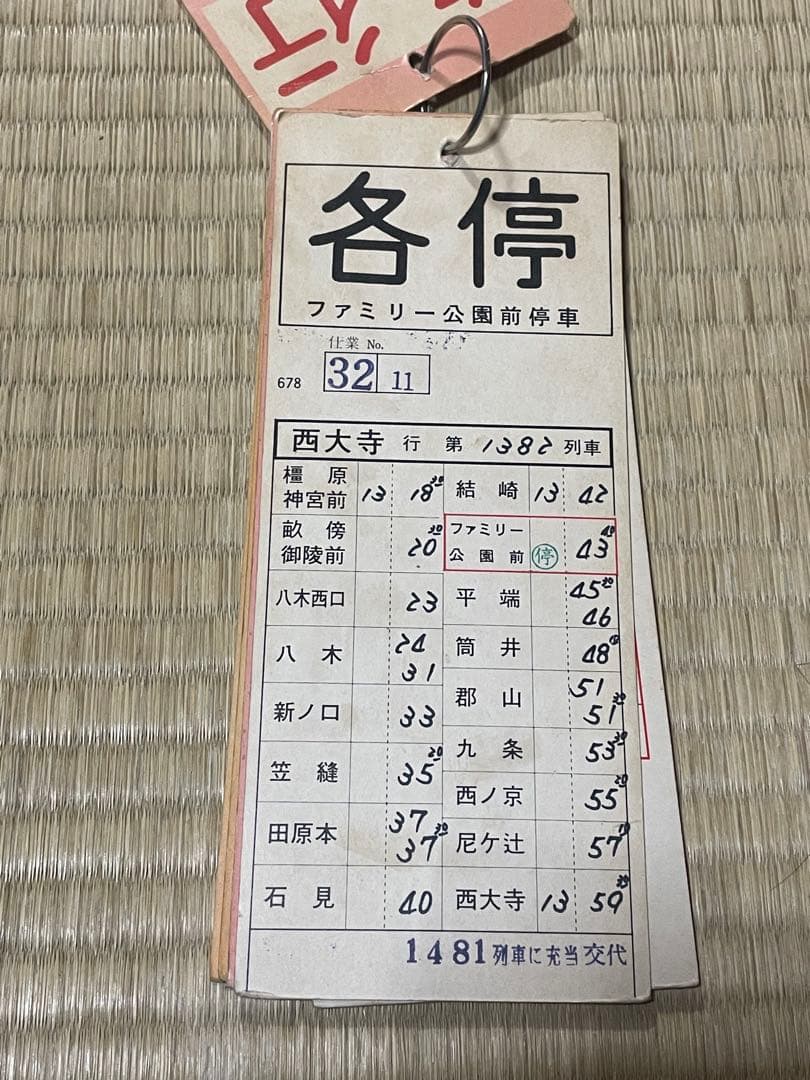 行
各停
ファミリー公園前停車
仕業 No.
678 32 11
西大寺 行 第 1382 列車
橿原神宮前 13 18 30
畝傍御陵前 20 30
八木西口 23
八木 24
31
新ノ口 33
笠縫 35 20
田原本 37
37 30
石見 40
結崎 13 42
ファミリー公園前 停 43 40
平端 45 30
46
筒井 48
郡山 51
51 30
九条 53 30
西ノ京 55 20
尼ケ辻 57 10
西大寺 13 59 30
1481列車に充当 交代